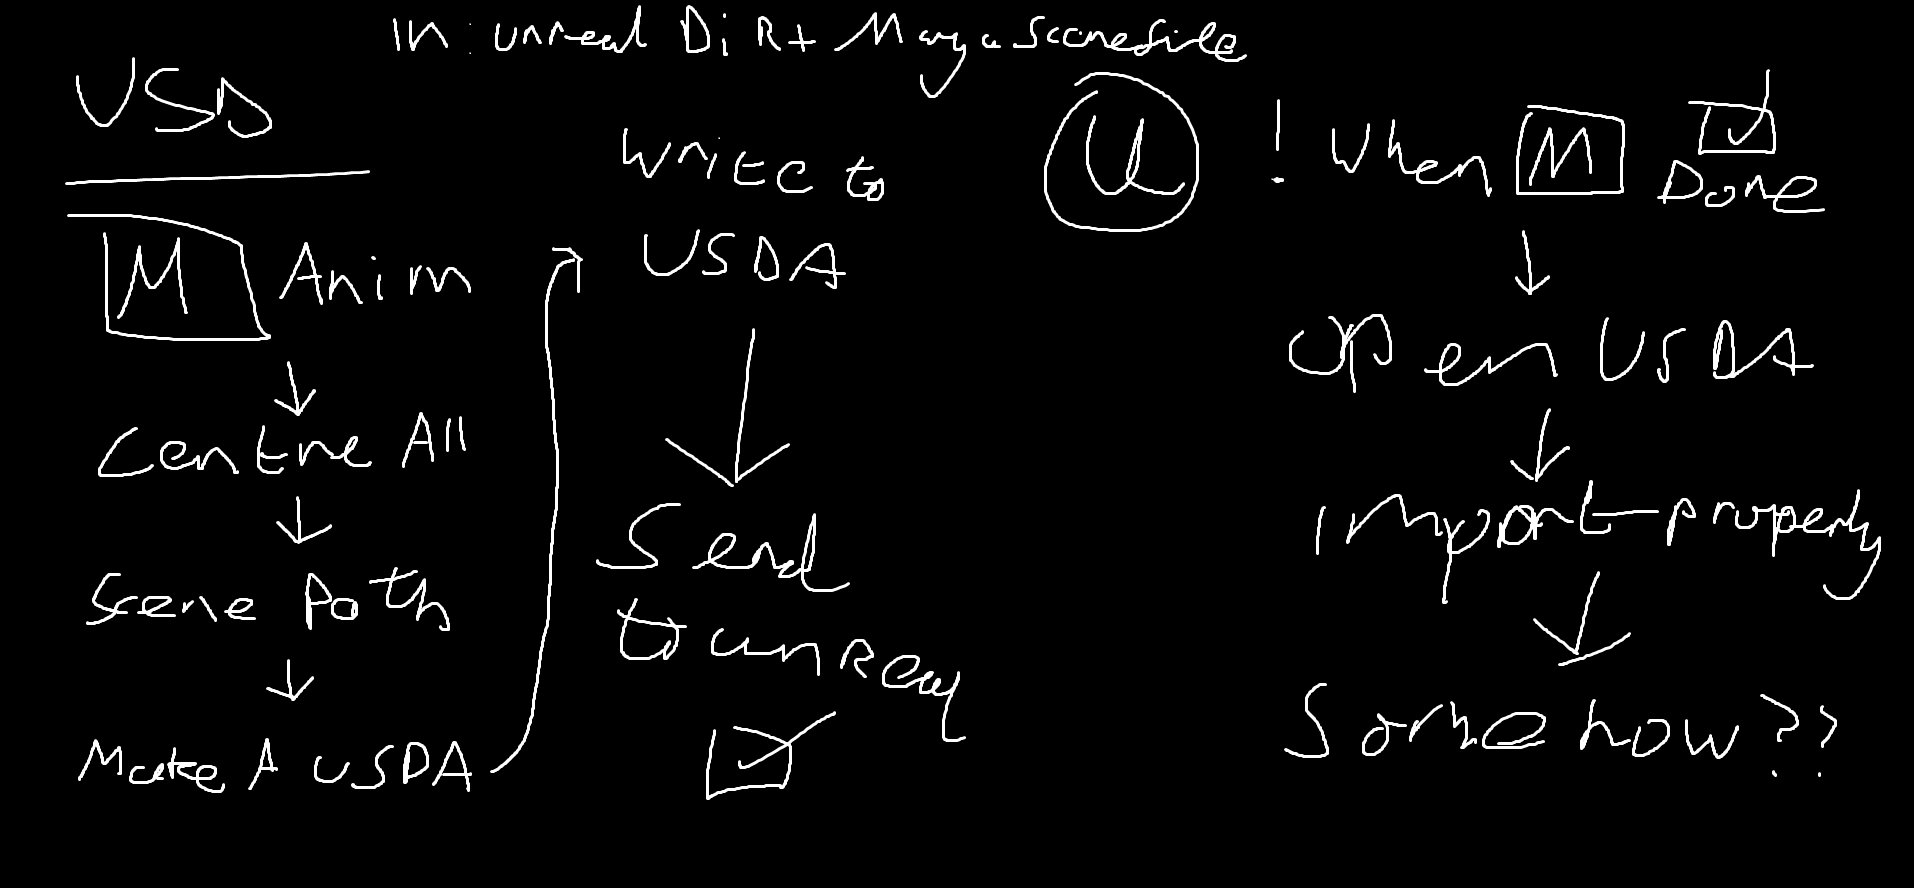 In: unreal Dir + Maya scenefile
USD
M Anim
Centre All
Scene Path
Make A USDA
Write to
USDA
Send
to unreal
U
! When M Done
Open USDA
Import properly
Somehow??